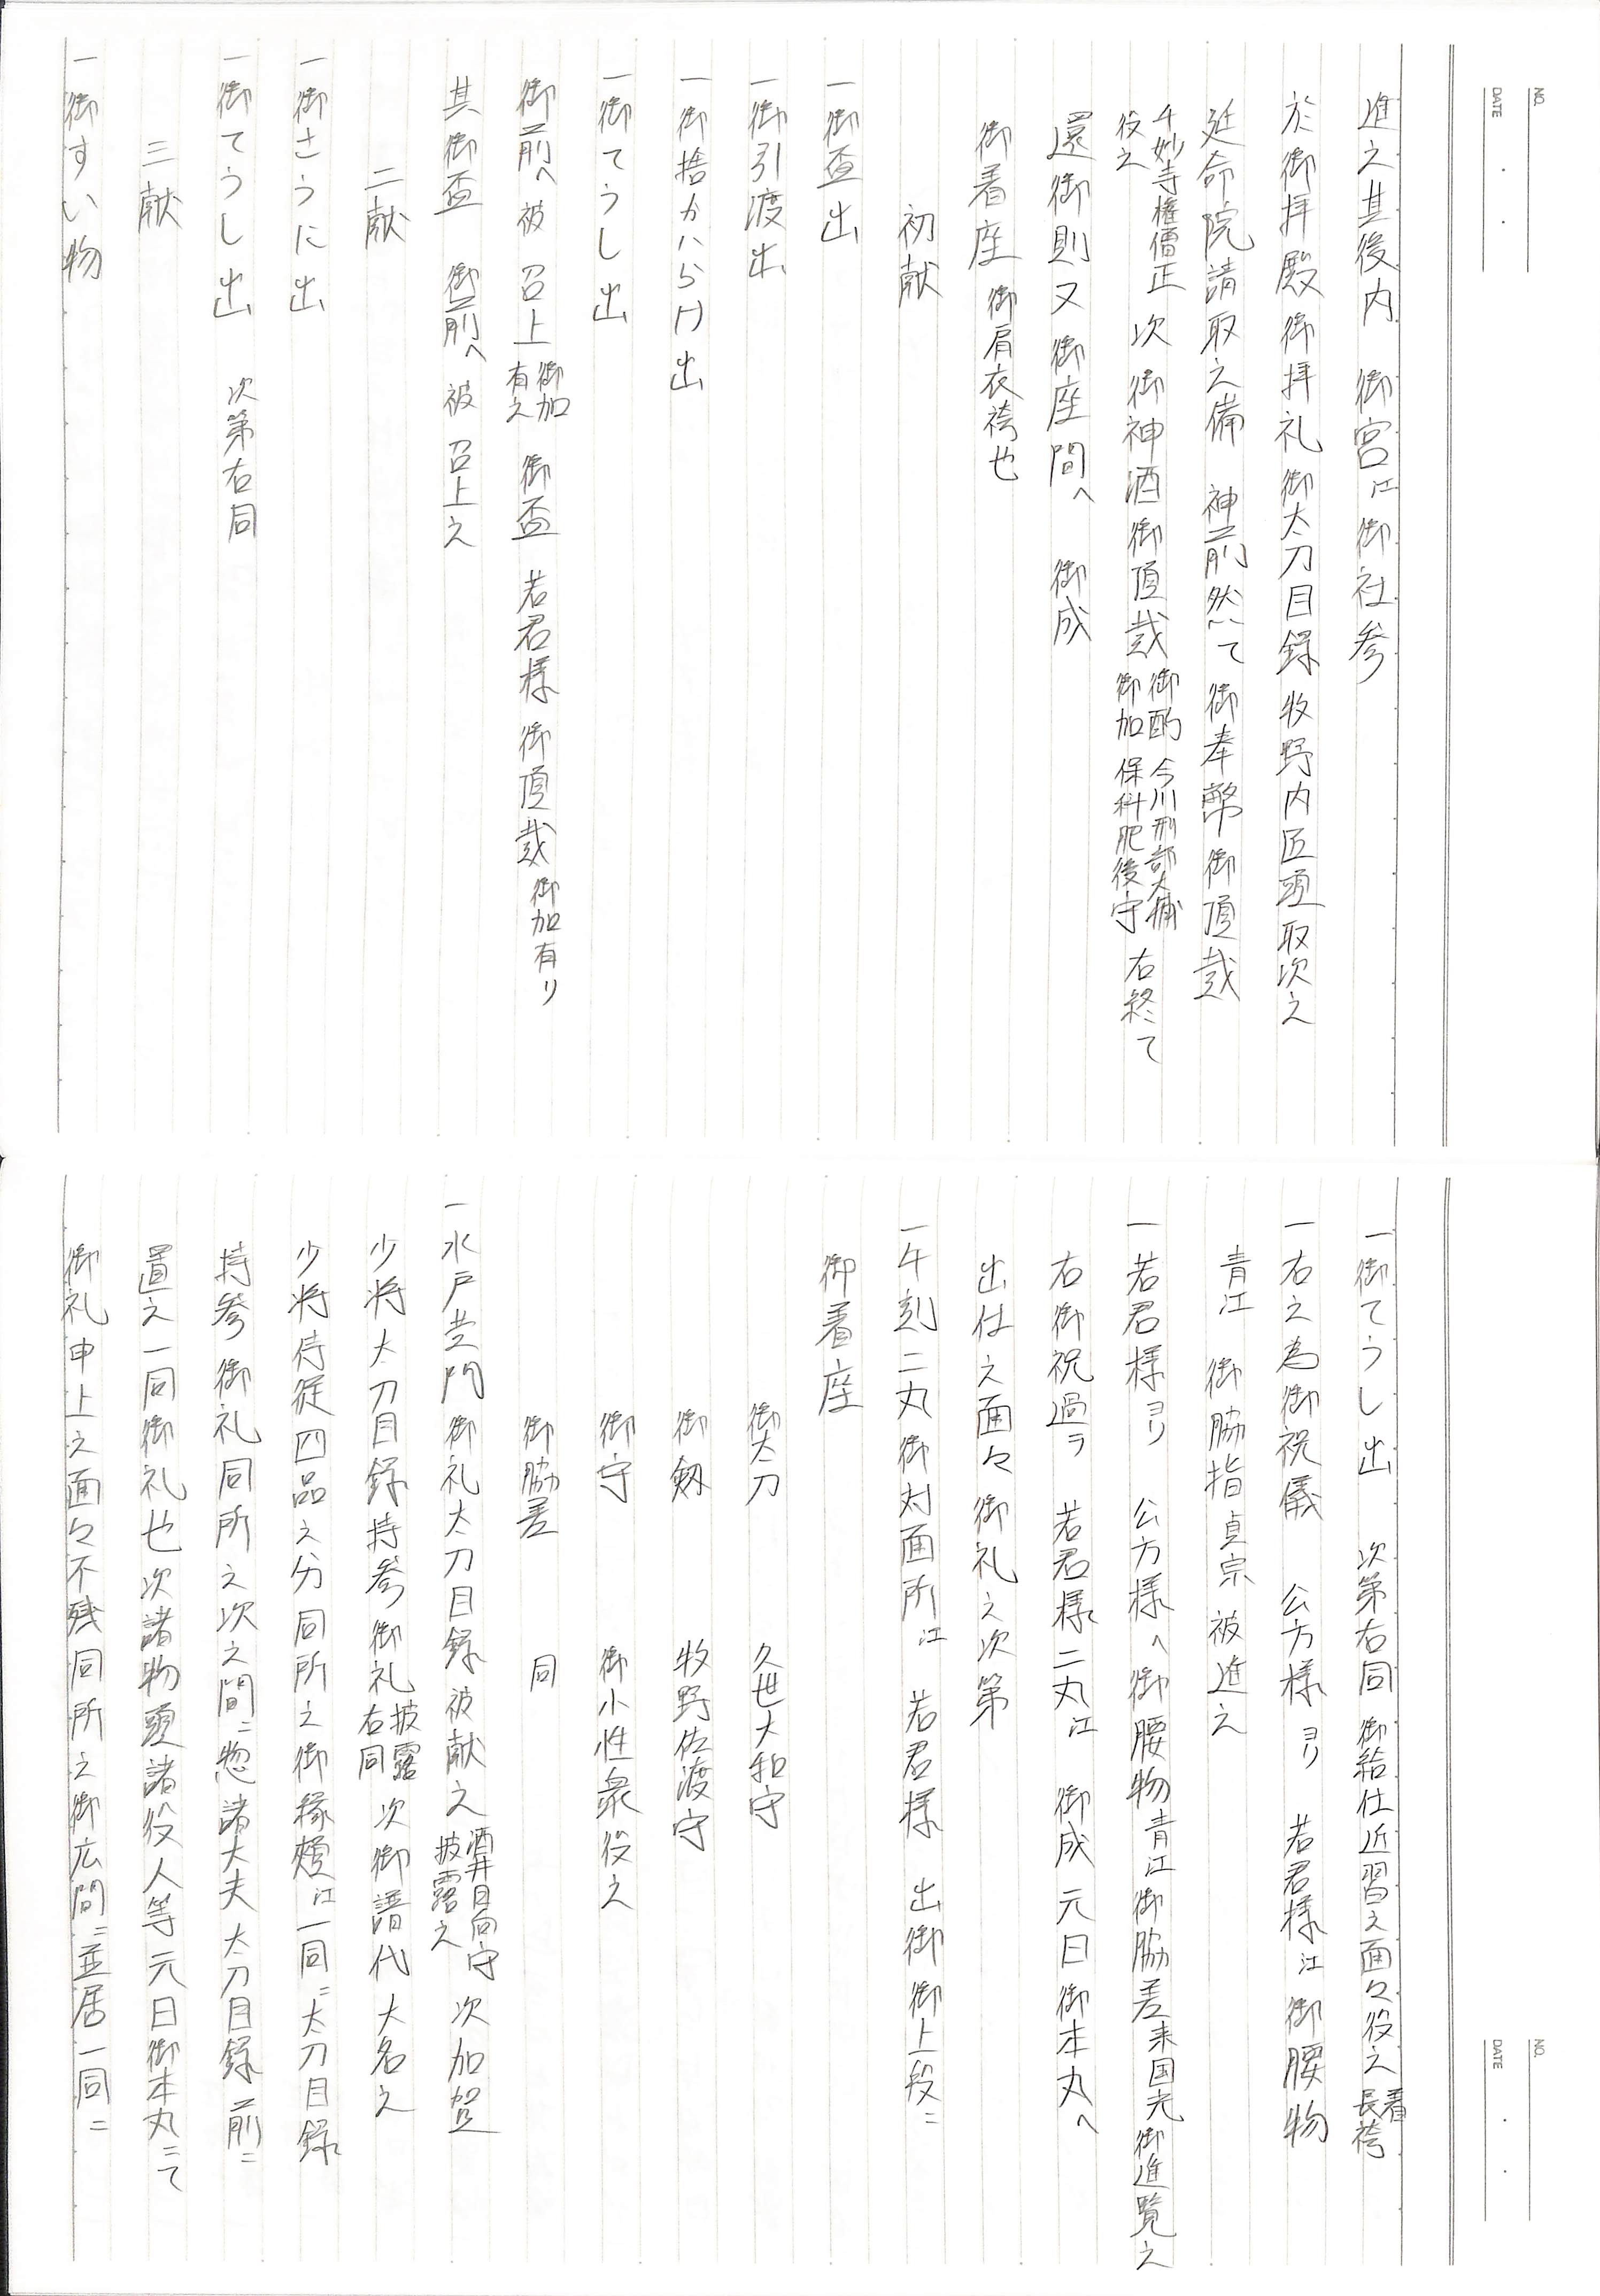 NO.
DATE
進之其後内　御宮江御社参
於御拝殿御拝礼御太刀目録牧野内匠頭取次之
延命院請取之備　神前然して御奉幣御頂戴
千妙寺権僧正役之　次　御神酒御頂戴　御酌　今川刑部大輔　御加　保科肥後守　右終て
還御則又御座間へ　御成
御着座　御肩衣袴也
初献
一御盃出
一御引渡出
一御捨かハらけ出
一御てうし出
御前へ被　召上　御加有之　御盃　若君様　御頂戴　御加有り
其御盃　御前へ被　召上之
二献
一御さうに出
一御てうし出　次第右同
三献
一御すい物
NO.
DATE
一御てうし出　次第右同　御給仕近習之面々役之　着長袴
一右之為御祝儀　公方様ヨリ　若君様江御腰物
青江　御脇指貞宗　被進之
一若君様ヨリ　公方様へ御腰物青江御脇差来国光御進覧之
右御祝過ヲ　若君様二丸江　御成　元日御本丸へ
出仕之面々御礼之次第
一午刻二丸御対面所江　若君様　出御　御上段ニ
御着座
御太刀　久世大和守
御剱　牧野佐渡守
御守　御小性衆役之
御脇差　同
一水戸黄門　御礼太刀目録被献之　酒井日向守披露之　次加賀
少将太刀目録持参御礼　披露右同　次御譜代大名之
少将侍従四品之分同所之御縁頬江一同ニ太刀目録
持参御礼同所之次之間ニ惣諸大夫太刀目録前ニ
置之一同御礼也次諸物頭諸役人等元日御本丸ニて
御礼申上之面々不残同所之御広間ニ並居一同ニ